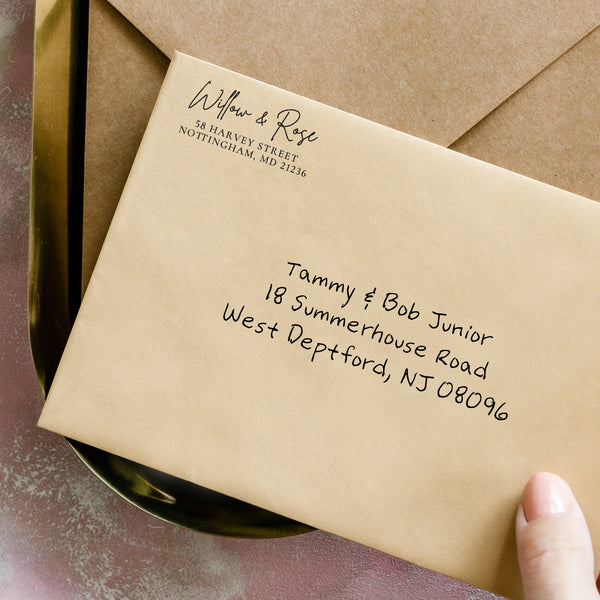 Willow & Rose
58 HARVEY STREET
NOTTINGHAM, MD 21236
Tammy & Bob Junior
18 Summerhouse Road
West Deptford, NJ 08096